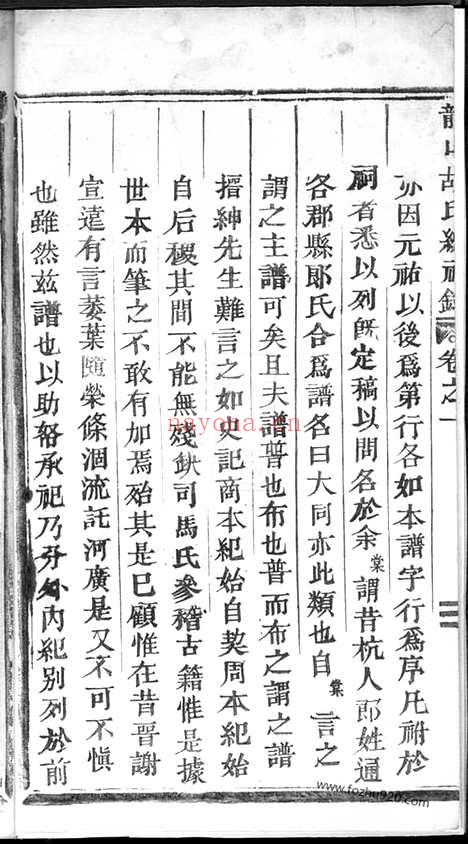 龍山胡氏總祠錄 卷之一
亦因元祐以後爲第行各如本譜字行爲序凡祔於
祠者悉以列旣定稿以問名於余棠謂昔杭人郎姓通
各郡縣郎氏合爲譜名曰大同亦此類也自棠言之
謂之主譜可矣且夫譜普也布也普而布之謂之譜
搢紳先生難言之如史記商本紀始自契周本紀始
自后稷其間不能無殘鈌司馬氏參稽古籍惟是據
世本而筆之不敢有加焉殆其是巳顧惟在昔晉謝
宣遠有言蔞葉隨榮條涸流託河廣是又不可不愼
也雖然茲譜也以助帑承祀乃分外內紀別列於前
nayona.cn
www.fozhu920.com